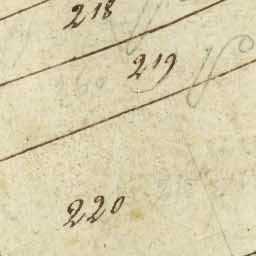 218
219
220